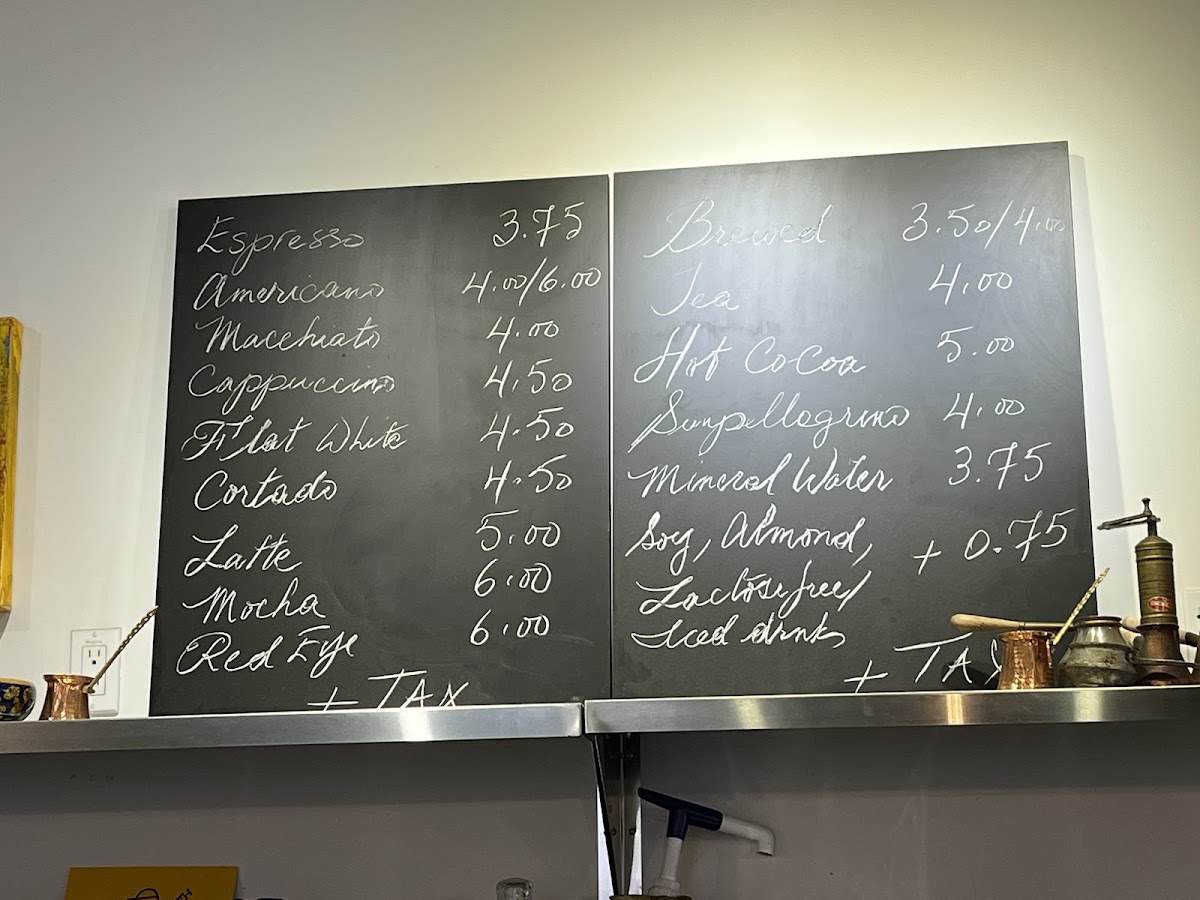 Espresso 3.75
Americano 4.00/6.00
Macchiato 4.00
Cappuccino 4.50
Flat White 4.50
Cortado 4.50
Latte 5.00
Mocha 6.00
Red Eye 6.00
+ TAX
Brewed 3.50/4.00
Tea 4.00
Hot Cocoa 5.00
Sanpellegrino 4.00
Mineral Water 3.75
Soy, Almond, + 0.75
Lactose free/
Iced drinks
+ TAX